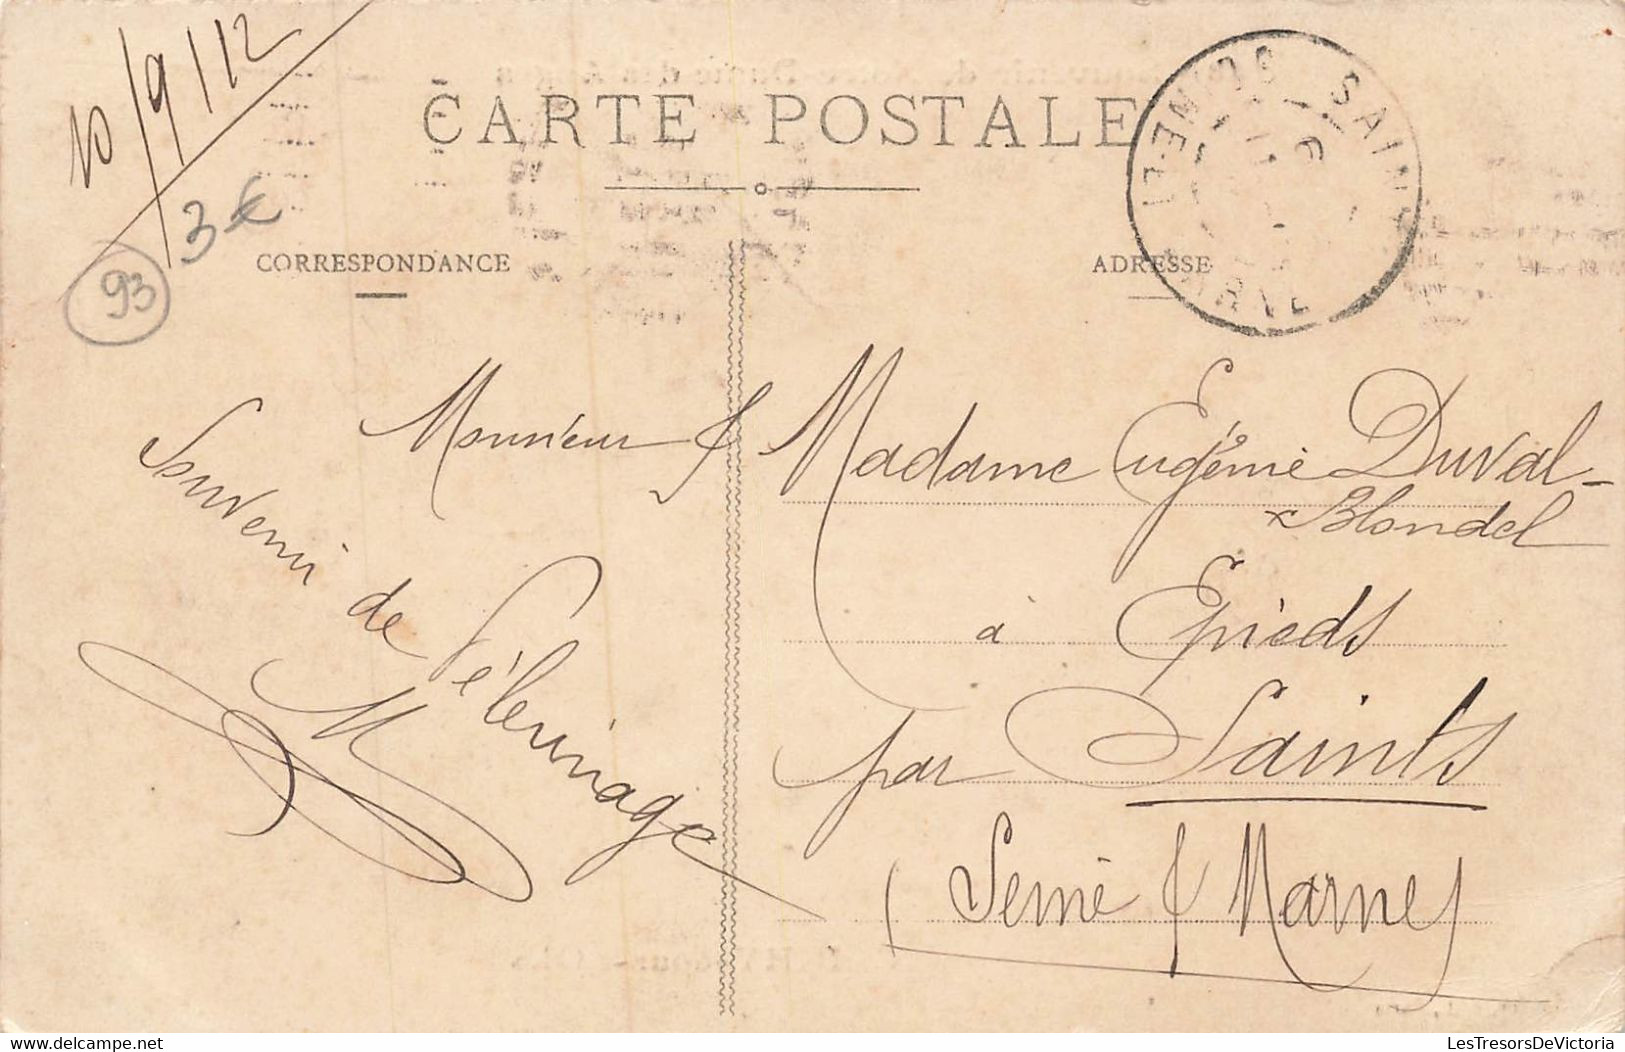 10/9/12
3€
93
CARTE POSTALE
CORRESPONDANCE
ADRESSE
SAIN
SEINE-ET
Souvenir de Pélerinage
M
Monsieur & Madame Eugénie Duval-
Blondel
à Epieds
par Saints
(Seine & Marne)
LesTresorsDeVictoria - delcampe.net
LesTresorsDeVictoria.com